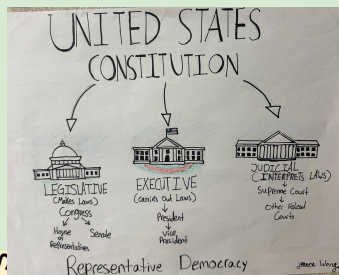 UNITED STATES
CONSTITUTION
LEGISLATIVE
(Makes Laws)
Congress
House of Representatives
Senate
EXECUTIVE
(Carries out Laws)
President
Vice President
JUDICIAL
(INTERPRETS LAWS)
Supreme Court
Other Federal
Courts
Representative Democracy
Wang